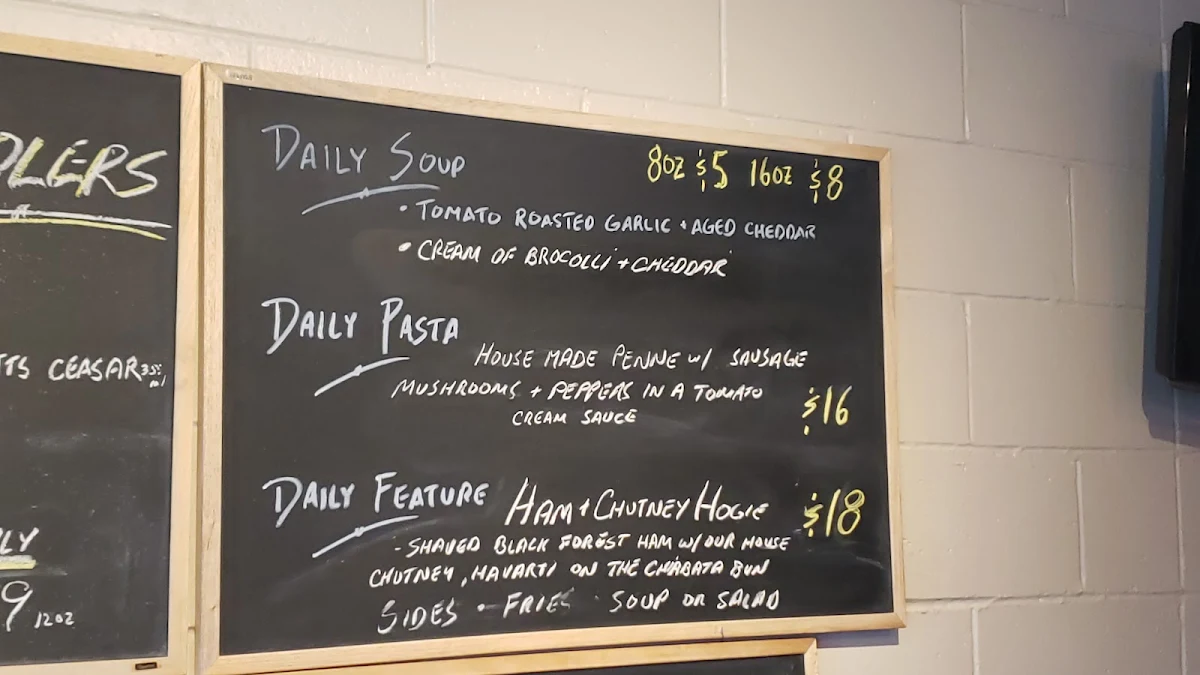 DAILY SOUP 8OZ $5 16OZ $8
• TOMATO ROASTED GARLIC + AGED CHEDDAR
• CREAM OF BROCOLLI + CHEDDAR
DAILY PASTA
HOUSE MADE PENNE w/ SAUSAGE
MUSHROOMS + PEPPERS IN A TOMATO
CREAM SAUCE
$16
DAILY FEATURE HAM + CHUTNEY HOGIE $18
- SHAVED BLACK FOREST HAM w/ OUR HOUSE
CHUTNEY, HAVARTI ON THE CHABATA BUN
SIDES • FRIES • SOUP OR SALAD
CEASAR
9 12OZ